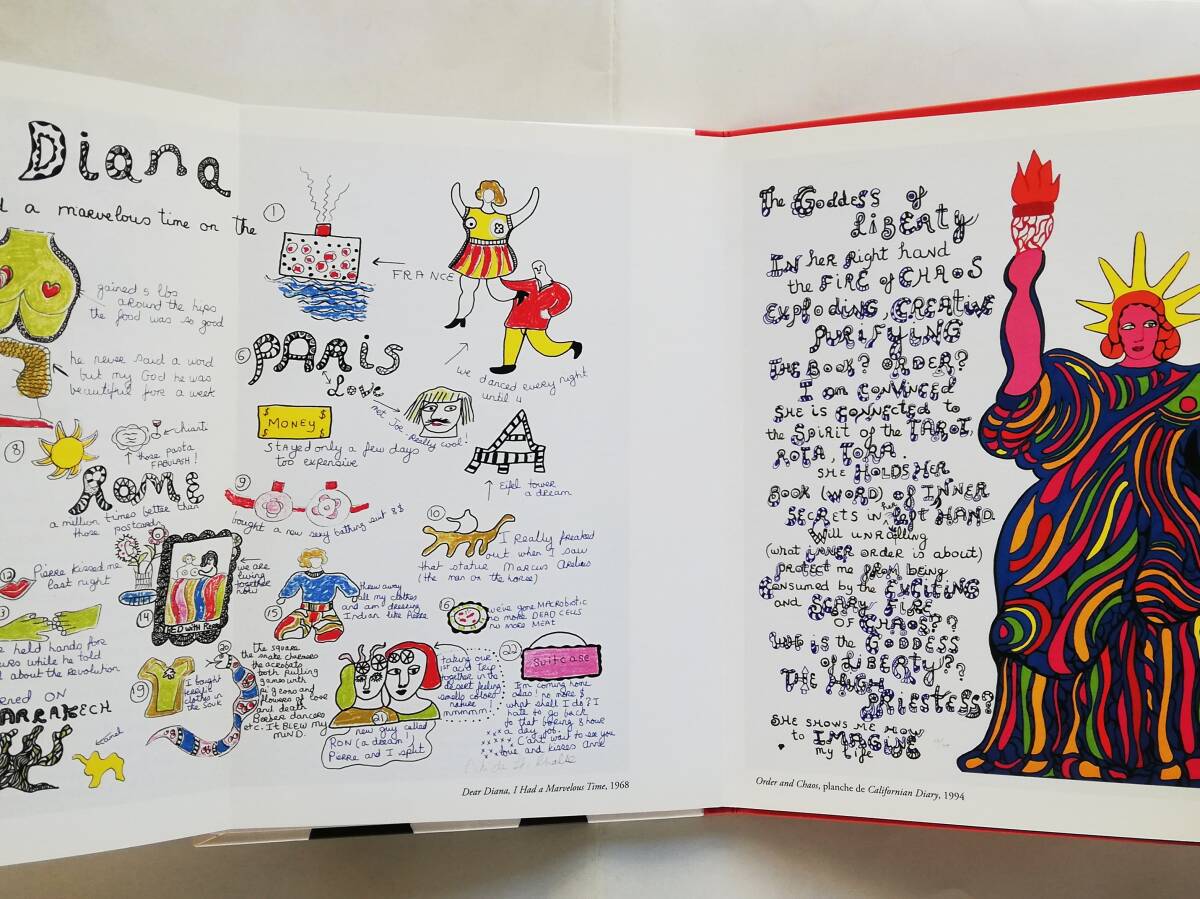 Diana
a marvelous time on the
gained 5 lbs
around the hips
the food was so good
he never said a word
but my God he was
beautiful for a week
8
chianti
those pasta
FABULASH!
ROME
a million times better than
those postcards
12
Pierre kissed me
last night
3
held hands for
while he told
about the Revolution
ON
ARRAKECH
camel
1
FRANCE
we danced every night
until 4
6
PARIS
Love
not Joe. Really cool!
$ $
MONEY
$ $
Stayed only a few days
too expensive
Eifel tower
a dream
9
bought a new sexy bathing suit 8$
10
I really freaked
out when I saw
that statue MARCUS
(the man on the horse)
14
we are
living
together
now
15
threw away
all my clothes
and am dressing
Indian like Pierre
16
we've gone MACROBIOTIC
no more DEAD CELLS
no more MEAT
19
I bought
clothes in
the souk
20
The square
the snake charmers
the acrobats
tooth pulling
games with
pigeons and
flowers of love
and death
dancers
etc. It BLEW my
MIND.
21
new guy called
RON (a dream!)
Pierre and I split
taking our
1st acid trip
together in the
desert feeling
nature!
mmmmm!
22
SUITCASE
I'm coming home
alas! no more $
what shall I do? I
hate to go back
to that boring 8 hour
xxx a day job.
xxxxx Can't wait to see you
xxx love and kisses Anne
Dear Diana, I Had a Marvelous Time, 1968
The Goddess of
LIBERTY
IN her Right hand
the FIRE of CHAOS
Exploding, CREATIVE
PURIFYING
THE BOOK? ORDER?
I am CONVINCED
SHE is CONNECTED to
the SPIRIT of the TAROT,
ROTA, TORA.
SHE HOLDS HER
BOOK (WORD) OF INNER
SECRETS in her LEFT HAND
Will unrolling
(what INNER ORDER is about)
PROTECT me FROM being
Consumed by the EXCITING
and SCARY FIRE
OF CHAOS??
WHO is the GODDESS
of LIBERTY??
THE HIGH
PRIESTESS?
SHE SHOWS ME HOW
to IMAGINE
my life
Order and Chaos, planche de Californian Diary, 1994